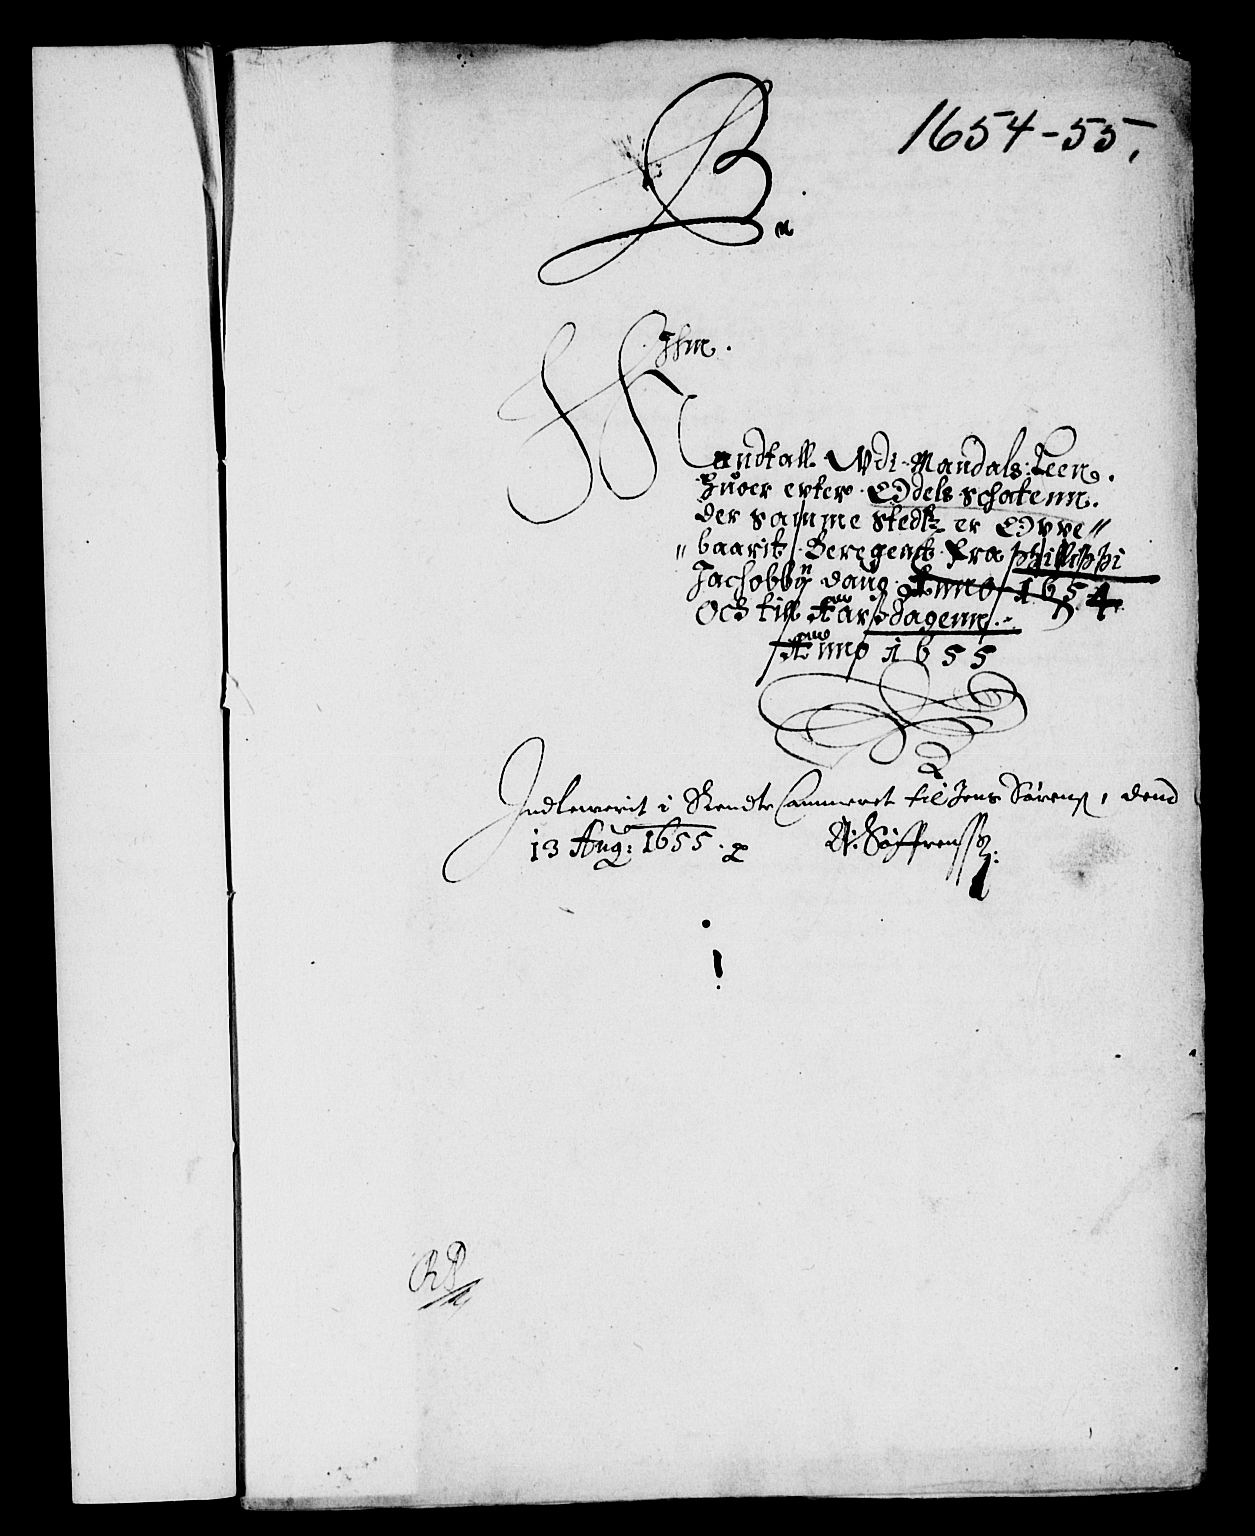 1654-55.
B
Jhm.
Mandtall Udi Mandals: Leen.
Huoer epter Odels schatenn.
der samme stedtz er Oppe"
"baarit, Beregenet fra Philippi
Jachobbÿ daug Anno 1654
Och till Aarsdagenn.
Anno 1655
Indleuerit i Rendte Cammeret til Jens Sørenß, dend
13 Aug: 1655.
Søffrenssz: